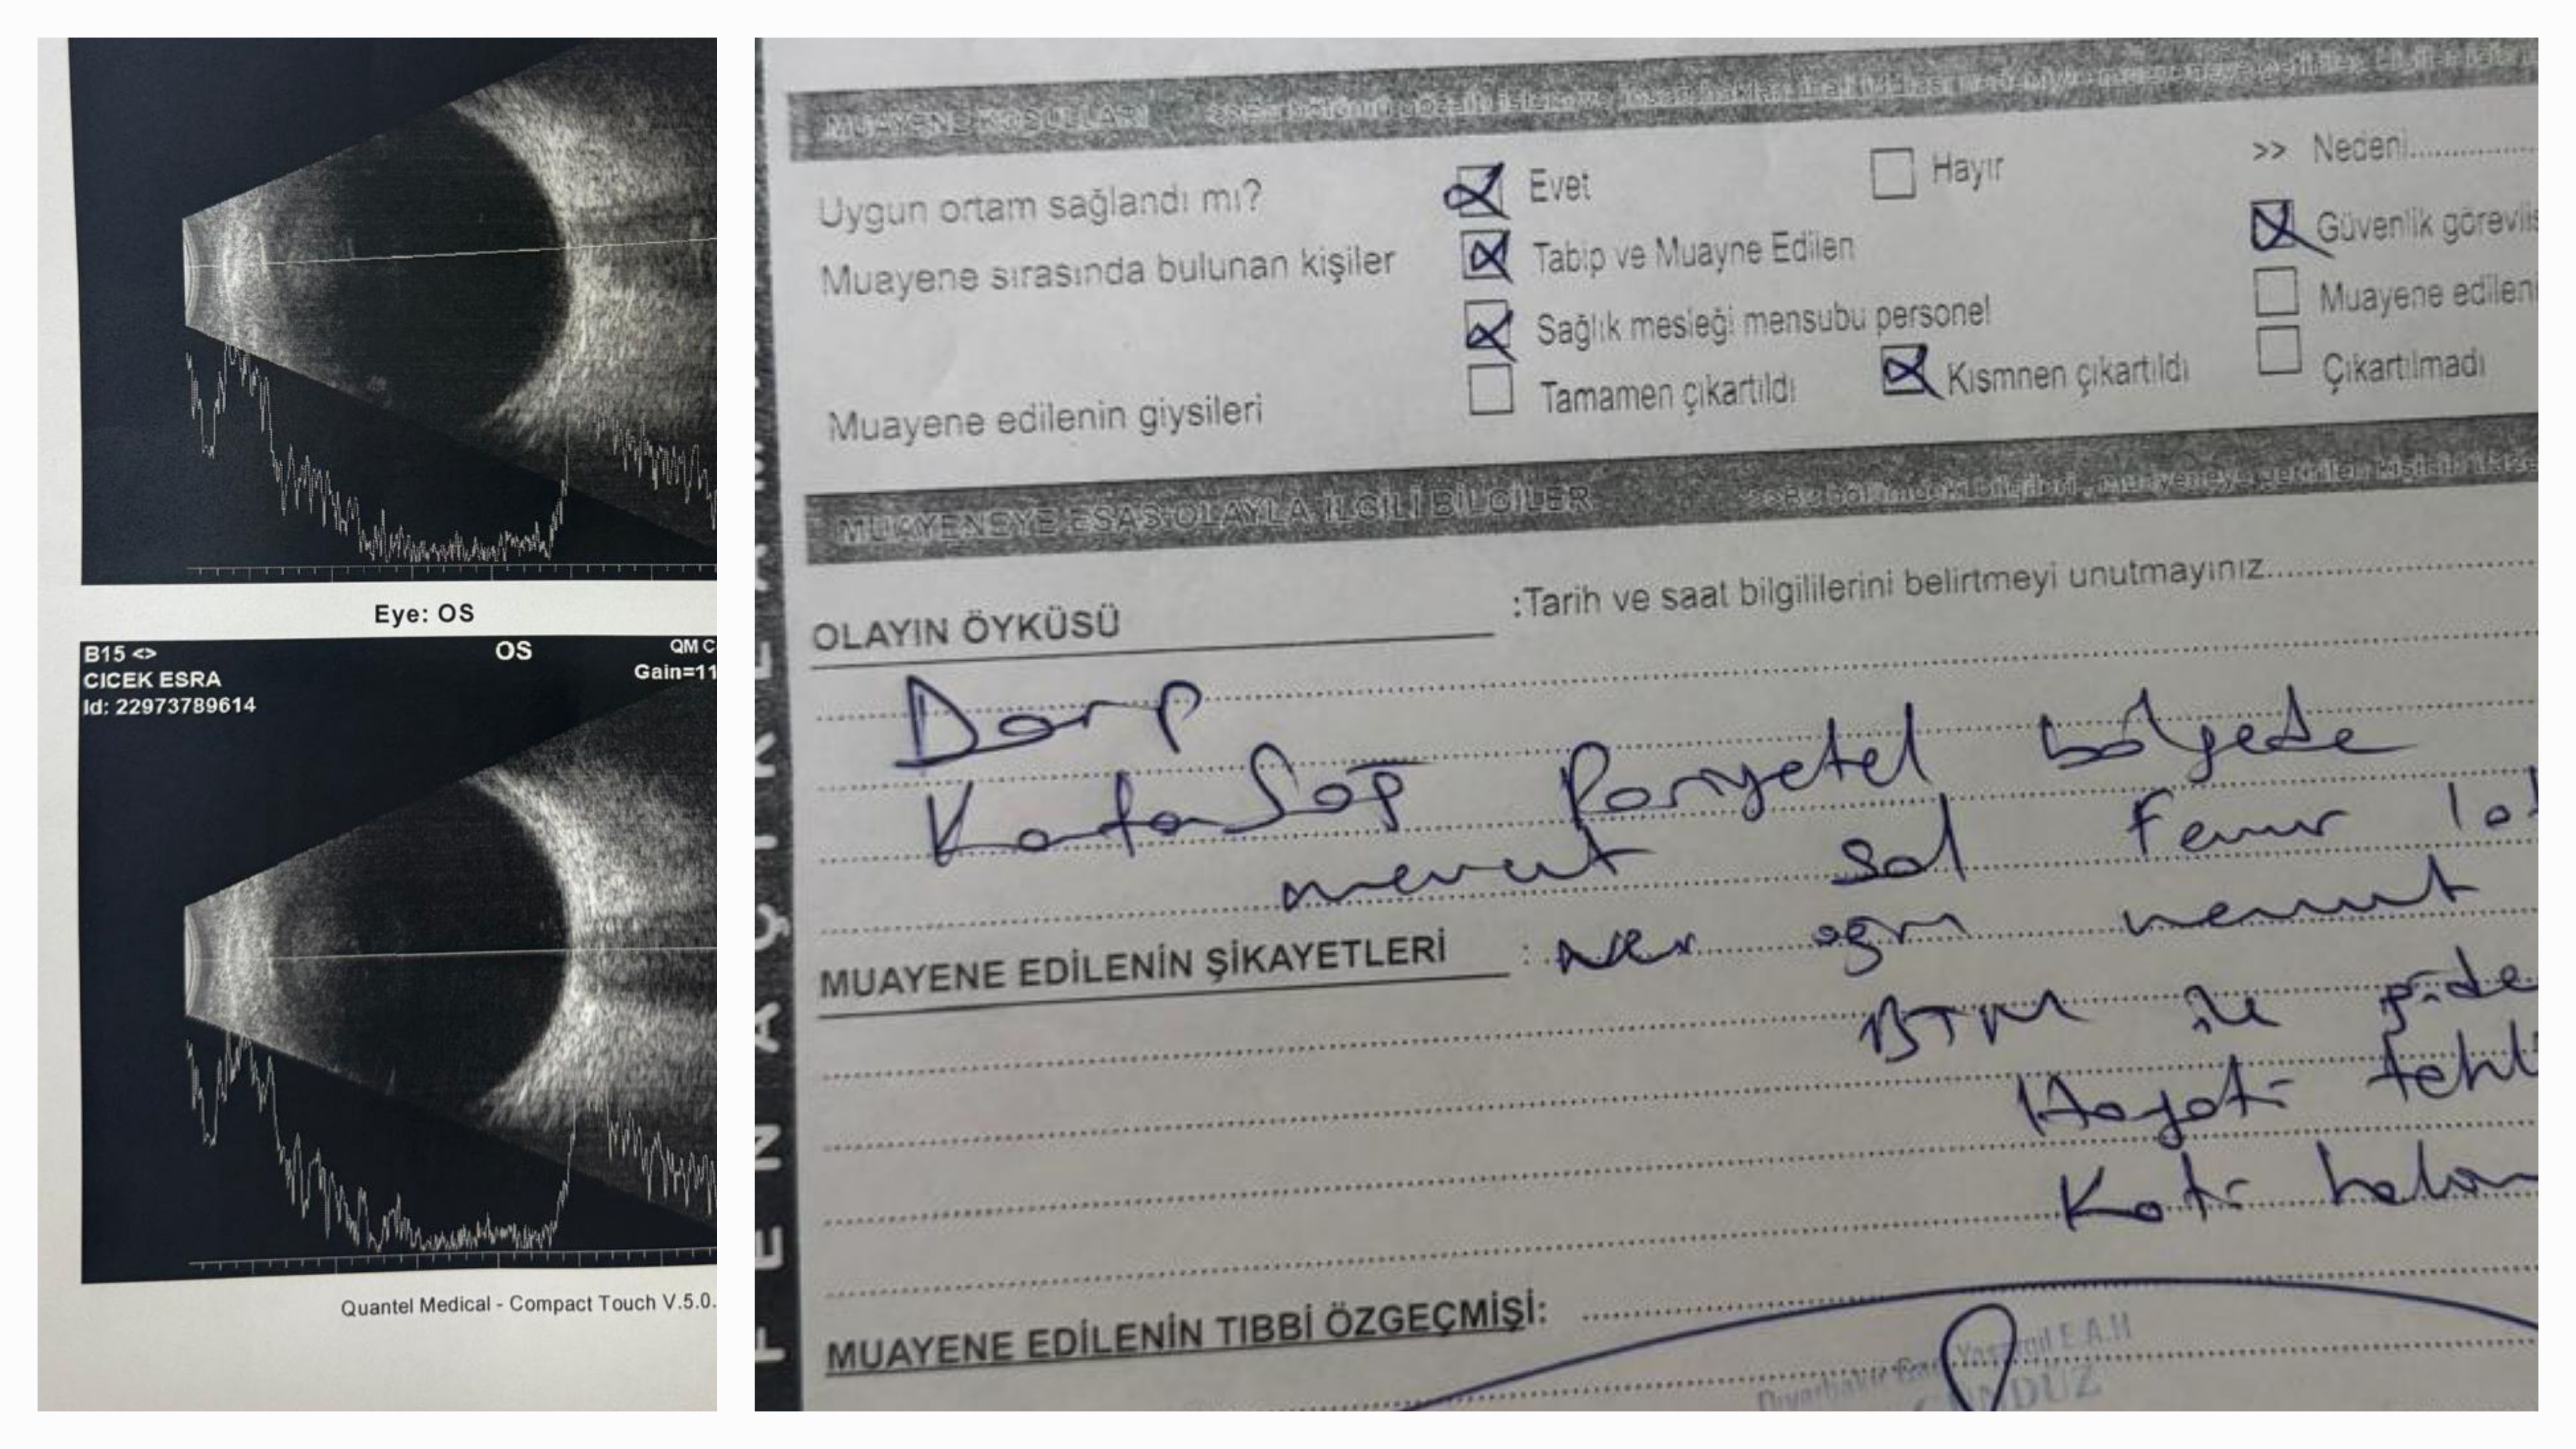 Eye: OS
B15 <>
OS
QM C
CICEK ESRA
Gain=11
Id: 22973789614
Quantel Medical - Compact Touch V.5.0.
MUAYENE KOŞULLARI
Uygun ortam sağlandı mı?
Evet
Hayır
>> Nedeni
Muayene sırasında bulunan kişiler
Tabip ve Muayne Edilen
Güvenlik görevlis
Sağlık mesleği mensubu personel
Muayene edileni
Muayene edilenin giysileri
Tamamen çıkartıldı
Kısmnen çıkartıldı
Çıkartılmadı
MUAYENEYE ESAS OLAYLA İLGİLİ BİLGİLER
OLAYIN ÖYKÜSÜ
:Tarih ve saat bilgililerini belirtmeyi unutmayınız
Darp
Kafa Sağ Paryetel bölgede
mevcut Sol Femur
MUAYENE EDİLENİN ŞİKAYETLERİ : ağrı mevcut
BTM ile gide
Hayati tehl
Kati
MUAYENE EDİLENİN TIBBİ ÖZGEÇMİŞİ:
E.A.H
GÜNDÜZ